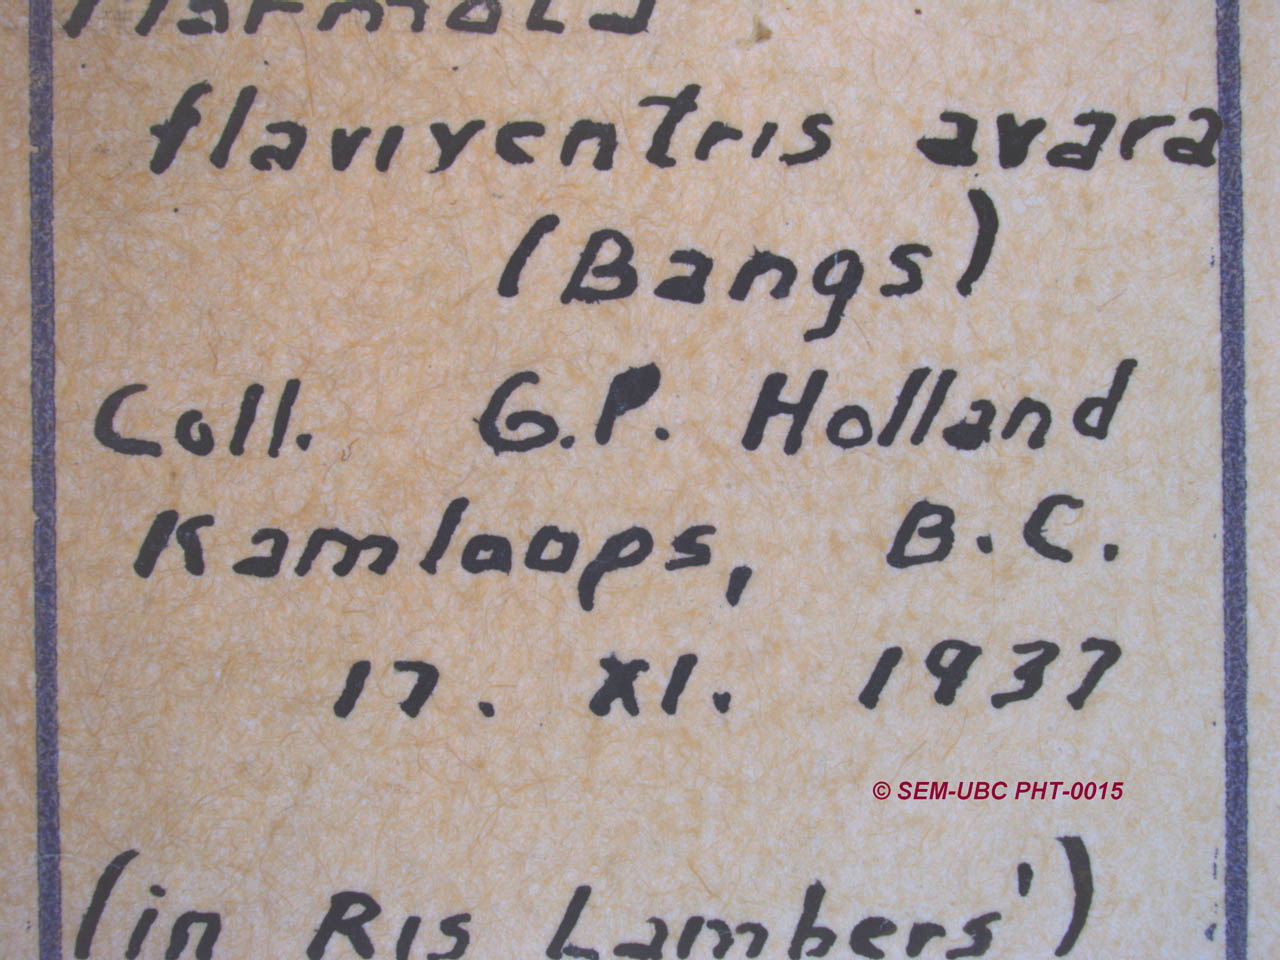 Marmota
flaviventris avara
(Bangs)
Coll. G.P. Holland
Kamloops, B.C.
17. XI. 1937
© SEM-UBC PHT-0015
(in Ris Lambers')